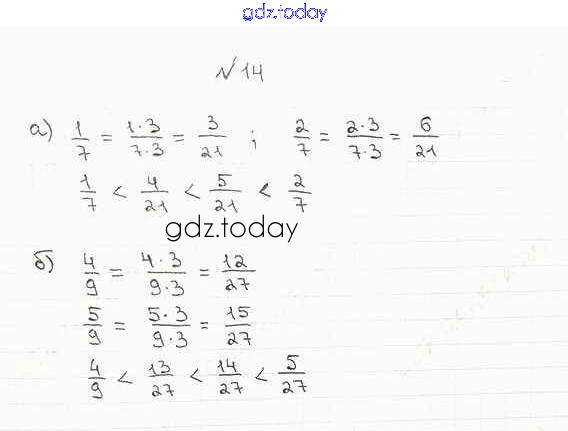 gdz.today
№ 14
а) 1/7 = 1·3/7·3 = 3/21 ; 2/7 = 2·3/7·3 = 6/21
1/7 < 4/21 < 5/21 < 2/7
gdz.today
б) 4/9 = 4·3/9·3 = 12/27
5/9 = 5·3/9·3 = 15/27
4/9 < 13/27 < 14/27 < 5/27